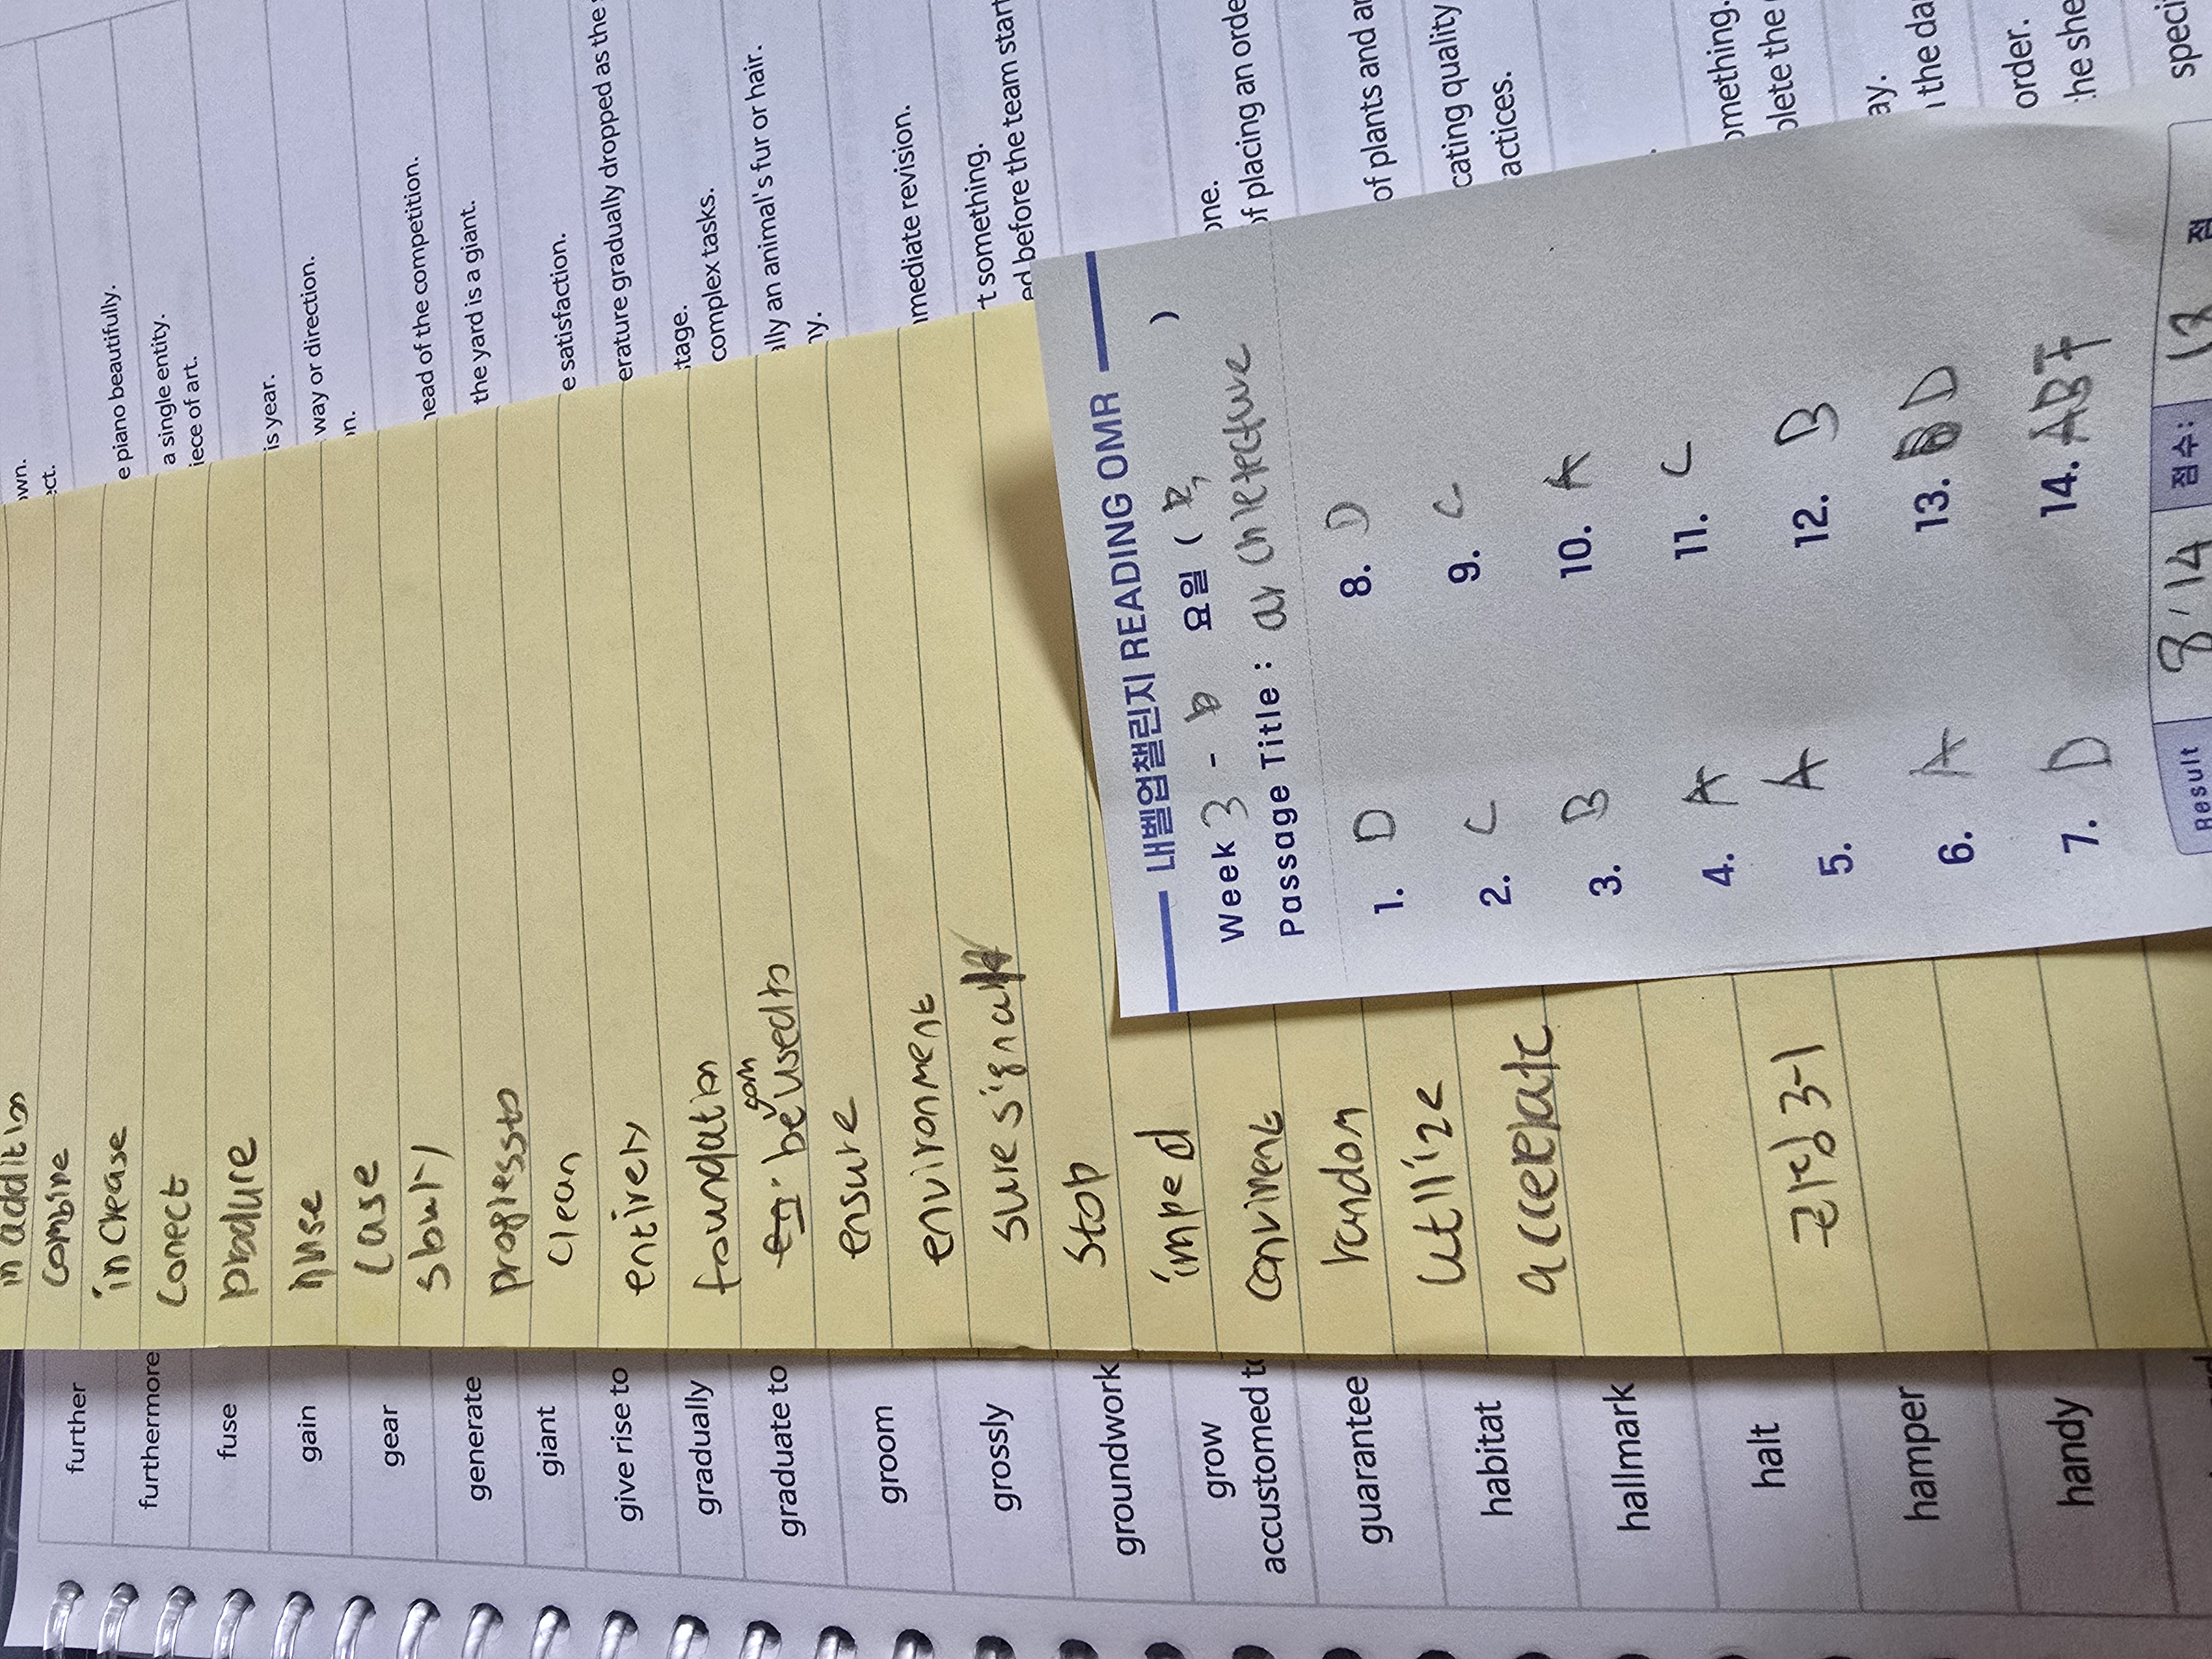 further
furthermore
fuse
gain
gear
generate
giant
give rise to
gradually
graduate to
groom
grossly
groundwork
grow
accustomed to
guarantee
habitat
hallmark
halt
hamper
handy
in addition
combine
increase
conect
produre
huse
case
slowly
progressto
clean
entirely
foundation
be com used to
ensure
environment
sure signal
Stop
imped
convinent
random
utllize
accelerate
리딩 3-1
own.
ect.
e piano beautifully.
a single entity.
iece of art.
is year.
way or direction.
on.
head of the competition.
the yard is a giant.
e satisfaction.
erature gradually dropped as the s
stage.
complex tasks.
ally an animal's fur or hair.
ny.
mmediate revision.
t something.
ed before the team start
one.
of placing an orde
of plants and an
cating quality
actices.
omething.
plete the
ay.
the da
order.
he she
speci
내벨업챌린지 READING OMR
Week 3 - b 요일 ( 목, )
Passage Title : archietecture
1. D
2. C
3. B
4. A
5. A
6. A
7. D
8. D
9. C
10. A
11. C
12. B
13. D
14. ABF
Result 8'14 점수: 13 점